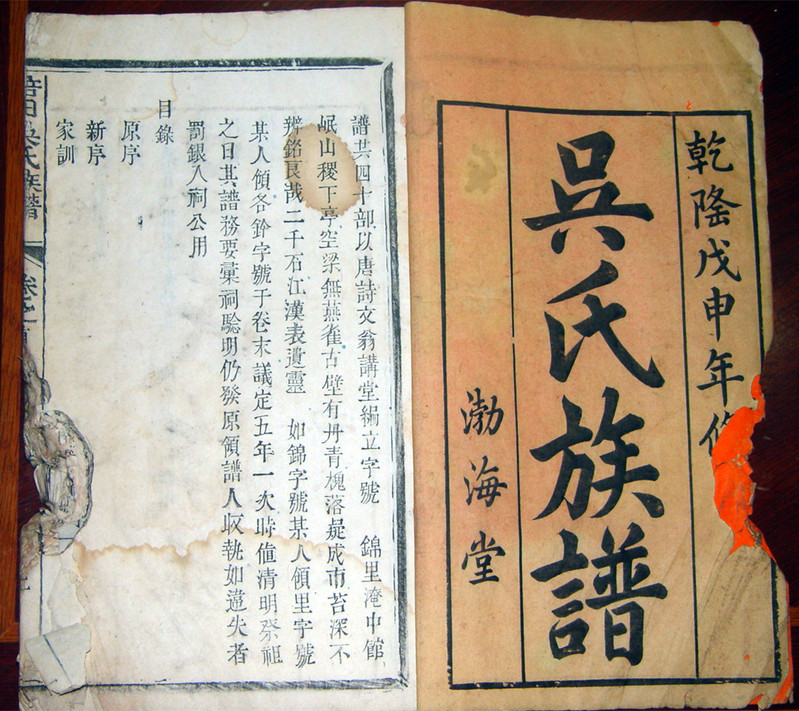 乾隆戊申年修
吳氏族譜
渤海堂
譜共四十部以唐詩文翁講堂編立字號　錦里淹中館
岷山稷下亭空梁無燕雀古壁有丹青槐落疑成市苔深不
辨銘良哉二千石江漢表遺靈　如錦字號某人領里字號
某人領各鈐字號于卷末議定五年一次時值清明祭祖
之日其譜務要彙祠驗明仍發原領譜人收執如違失者
罰銀入祠公用
目錄
原序
新序
家訓
吳氏族譜